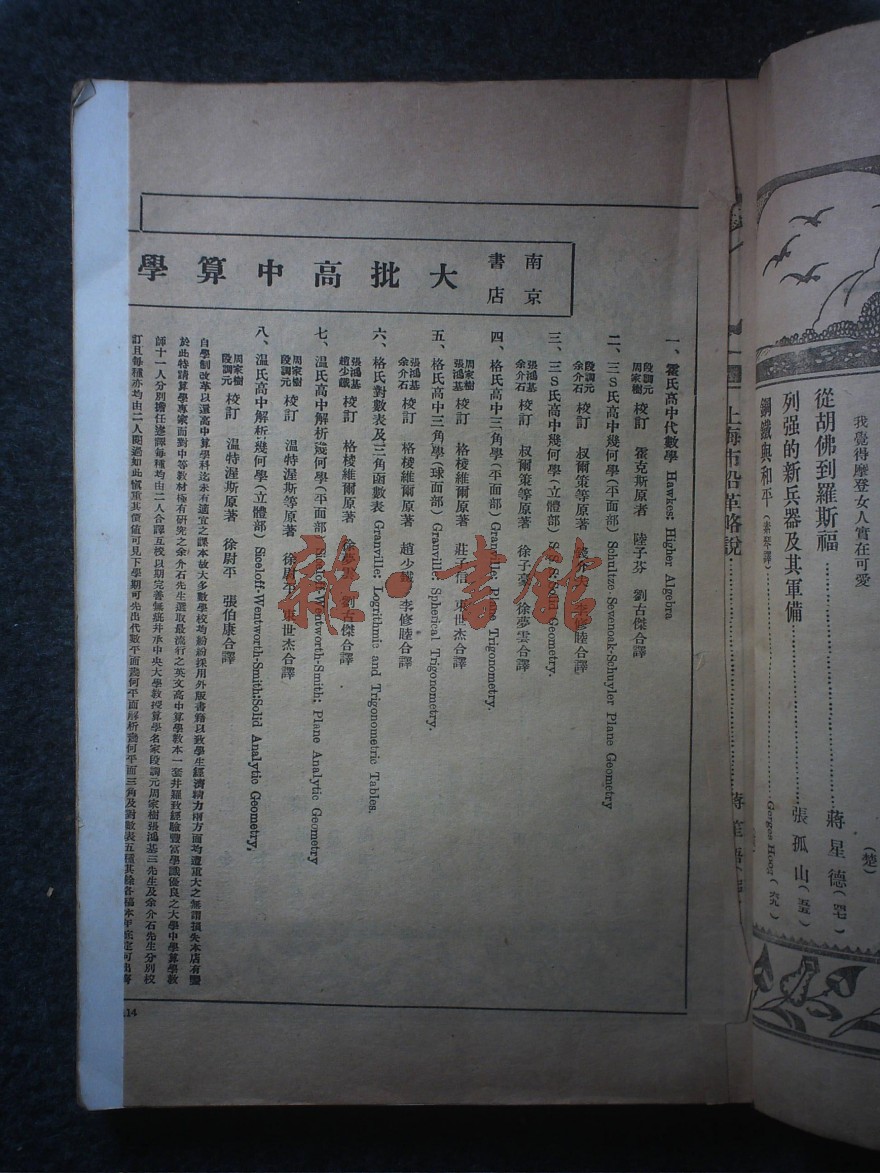 南京書店
大批高中算學
一、霍氏高中代數學 Hawkes: Higher Algebra
段調元 周家樹 校訂 霍克斯原著 陸子芬 劉古傑合譯
二、三S氏高中幾何學(平面部) Schultze-Sevenoak-Schuyler Plane Geometry
段調元 余介石 校訂 叔爾策等原著 李修睦合譯
三、三S氏高中幾何學(立體部) Solid Geometry.
張鴻基 余介石 校訂 叔爾策等原著 徐子豪 徐夢雲合譯
四、格氏高中三角學(平面部) Granville: Plane Trigonometry.
張鴻基 周家樹 校訂 格棱維爾原著 莊子信 束世杰合譯
五、格氏高中三角學(球面部) Granville: Spherical Trigonometry.
張鴻基 余介石 校訂 格棱維爾原著 趙少鐵 李修睦合譯
六、格氏對數表及三角函數表 Granville: Logrithmic and Trigonometric Tables.
張鴻基 趙少鐵 校訂 格棱維爾原著 劉古傑合譯
七、温氏高中解析幾何學(平面部) Siceloff-Wentworth-Smith: Plane Analytic Geometry
周家樹 段調元 校訂 温特渥斯等原著 徐尉平 束世杰合譯
八、温氏高中解析幾何學(立體部) Siceloff-Wentworth-Smith:Solid Analytic Geometry,
周家樹 段調元 校訂 温特渥斯原著 徐尉平 張伯康合譯
自學制改革以還高中算學科迄未有適宜之課本故大多數學校均紛紛採用外版書籍以致學生經濟精力兩方面均遭重大之無謂損失本店有鑒
於此特請算學專家而對中等教材極有研究之余介石先生選取最流行之英文高中算學教本一套并羅致經驗豐富學識優良之大學中學算學教
師十一人分別擔任迻譯每種均由二人合譯互校以期完善無疵并承中央大學教授算學名家段調元周家樹張鴻基三先生及余介石先生分別校
訂且每種亦均由二人閱過如此慎重其價值可見下學期可先出代數平面幾何平面解析幾何平面三角及對數表五種其餘各稿本年底定可出齊
14
我覺得摩登女人實在可愛
(楚)
從胡佛到羅斯福 蔣星德
列强的新兵器及其軍備 張孤山
鋼鐵與和平(素琴譯) Georges Hoog
上海市沿革略說
雜·書館